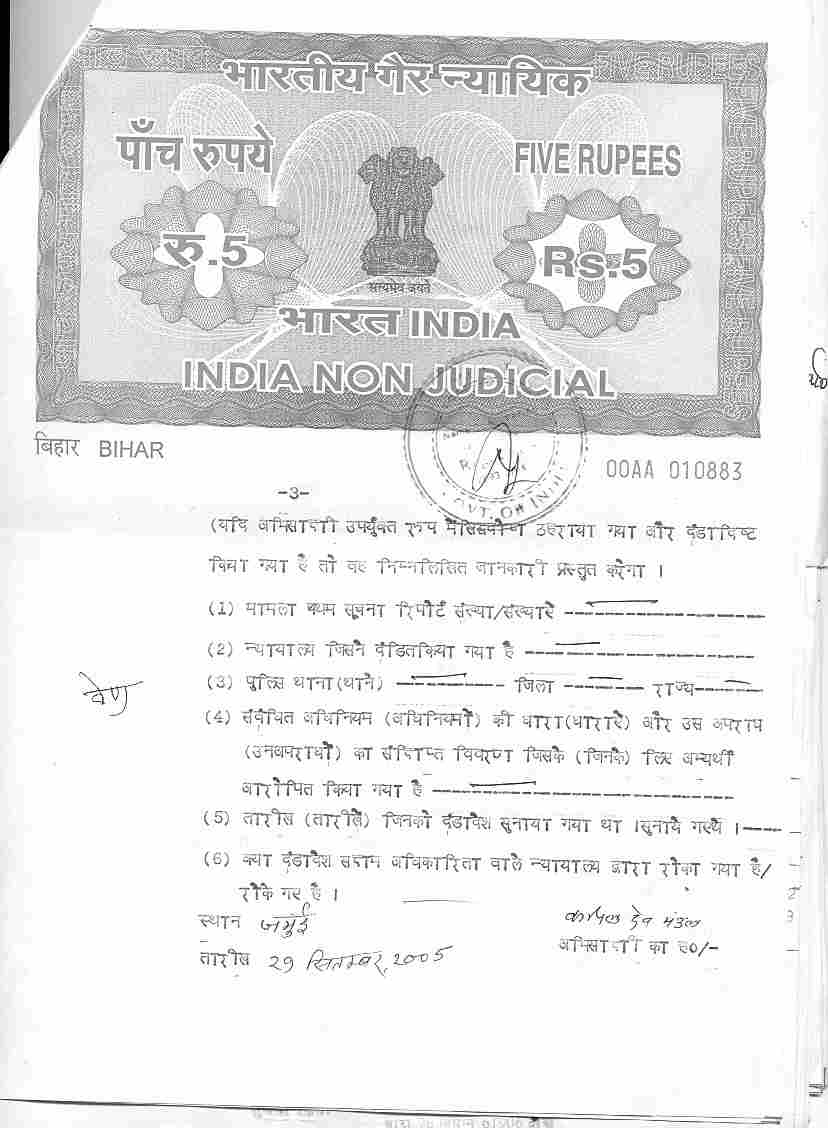 भारतीय गैर न्यायिक
पाँच रुपये
FIVE RUPEES
रु.5
Rs.5
सत्यमेव जयते
भारत INDIA
INDIA NON JUDICIAL
बिहार BIHAR
00AA 010883
GVT. OF INDIA
-3-
(यदि अभिसाक्षी उपर्युक्त रूप में ठहराया गया और दंडादिष्ट
किया गया है तो वह निम्नलिखित जानकारी प्रस्तुत करेगा ।
(1) मामला प्रथम सूचना रिपोर्ट संख्या/संख्यारें
(2) न्यायालय जिसने दंडितकिया गया है
(3) पुलिस थाना(थाने) जिला राज्य
(4) संबंधित अधिनियम (अधिनियमों) की धारा(धारारें) और उस अपराध
(उनअपराधों) का संक्षिप्त विवरण जिसके (जिनके) लिए अभ्यर्थी
आरोपित किया गया है
(5) तारीख (तारीखें) जिनको दंडादेश सुनाया गया था ।सुनाये गएथे ।
(6) क्या दंडादेश सक्षम अधिकारिता वाले न्यायालय द्वारा रोका गया है/
रोके गए है ।
स्थान जमुई
कपिल देव मंडल
तारीख 29 सितम्बर, 2005
अभिसाक्षी का ह0/-